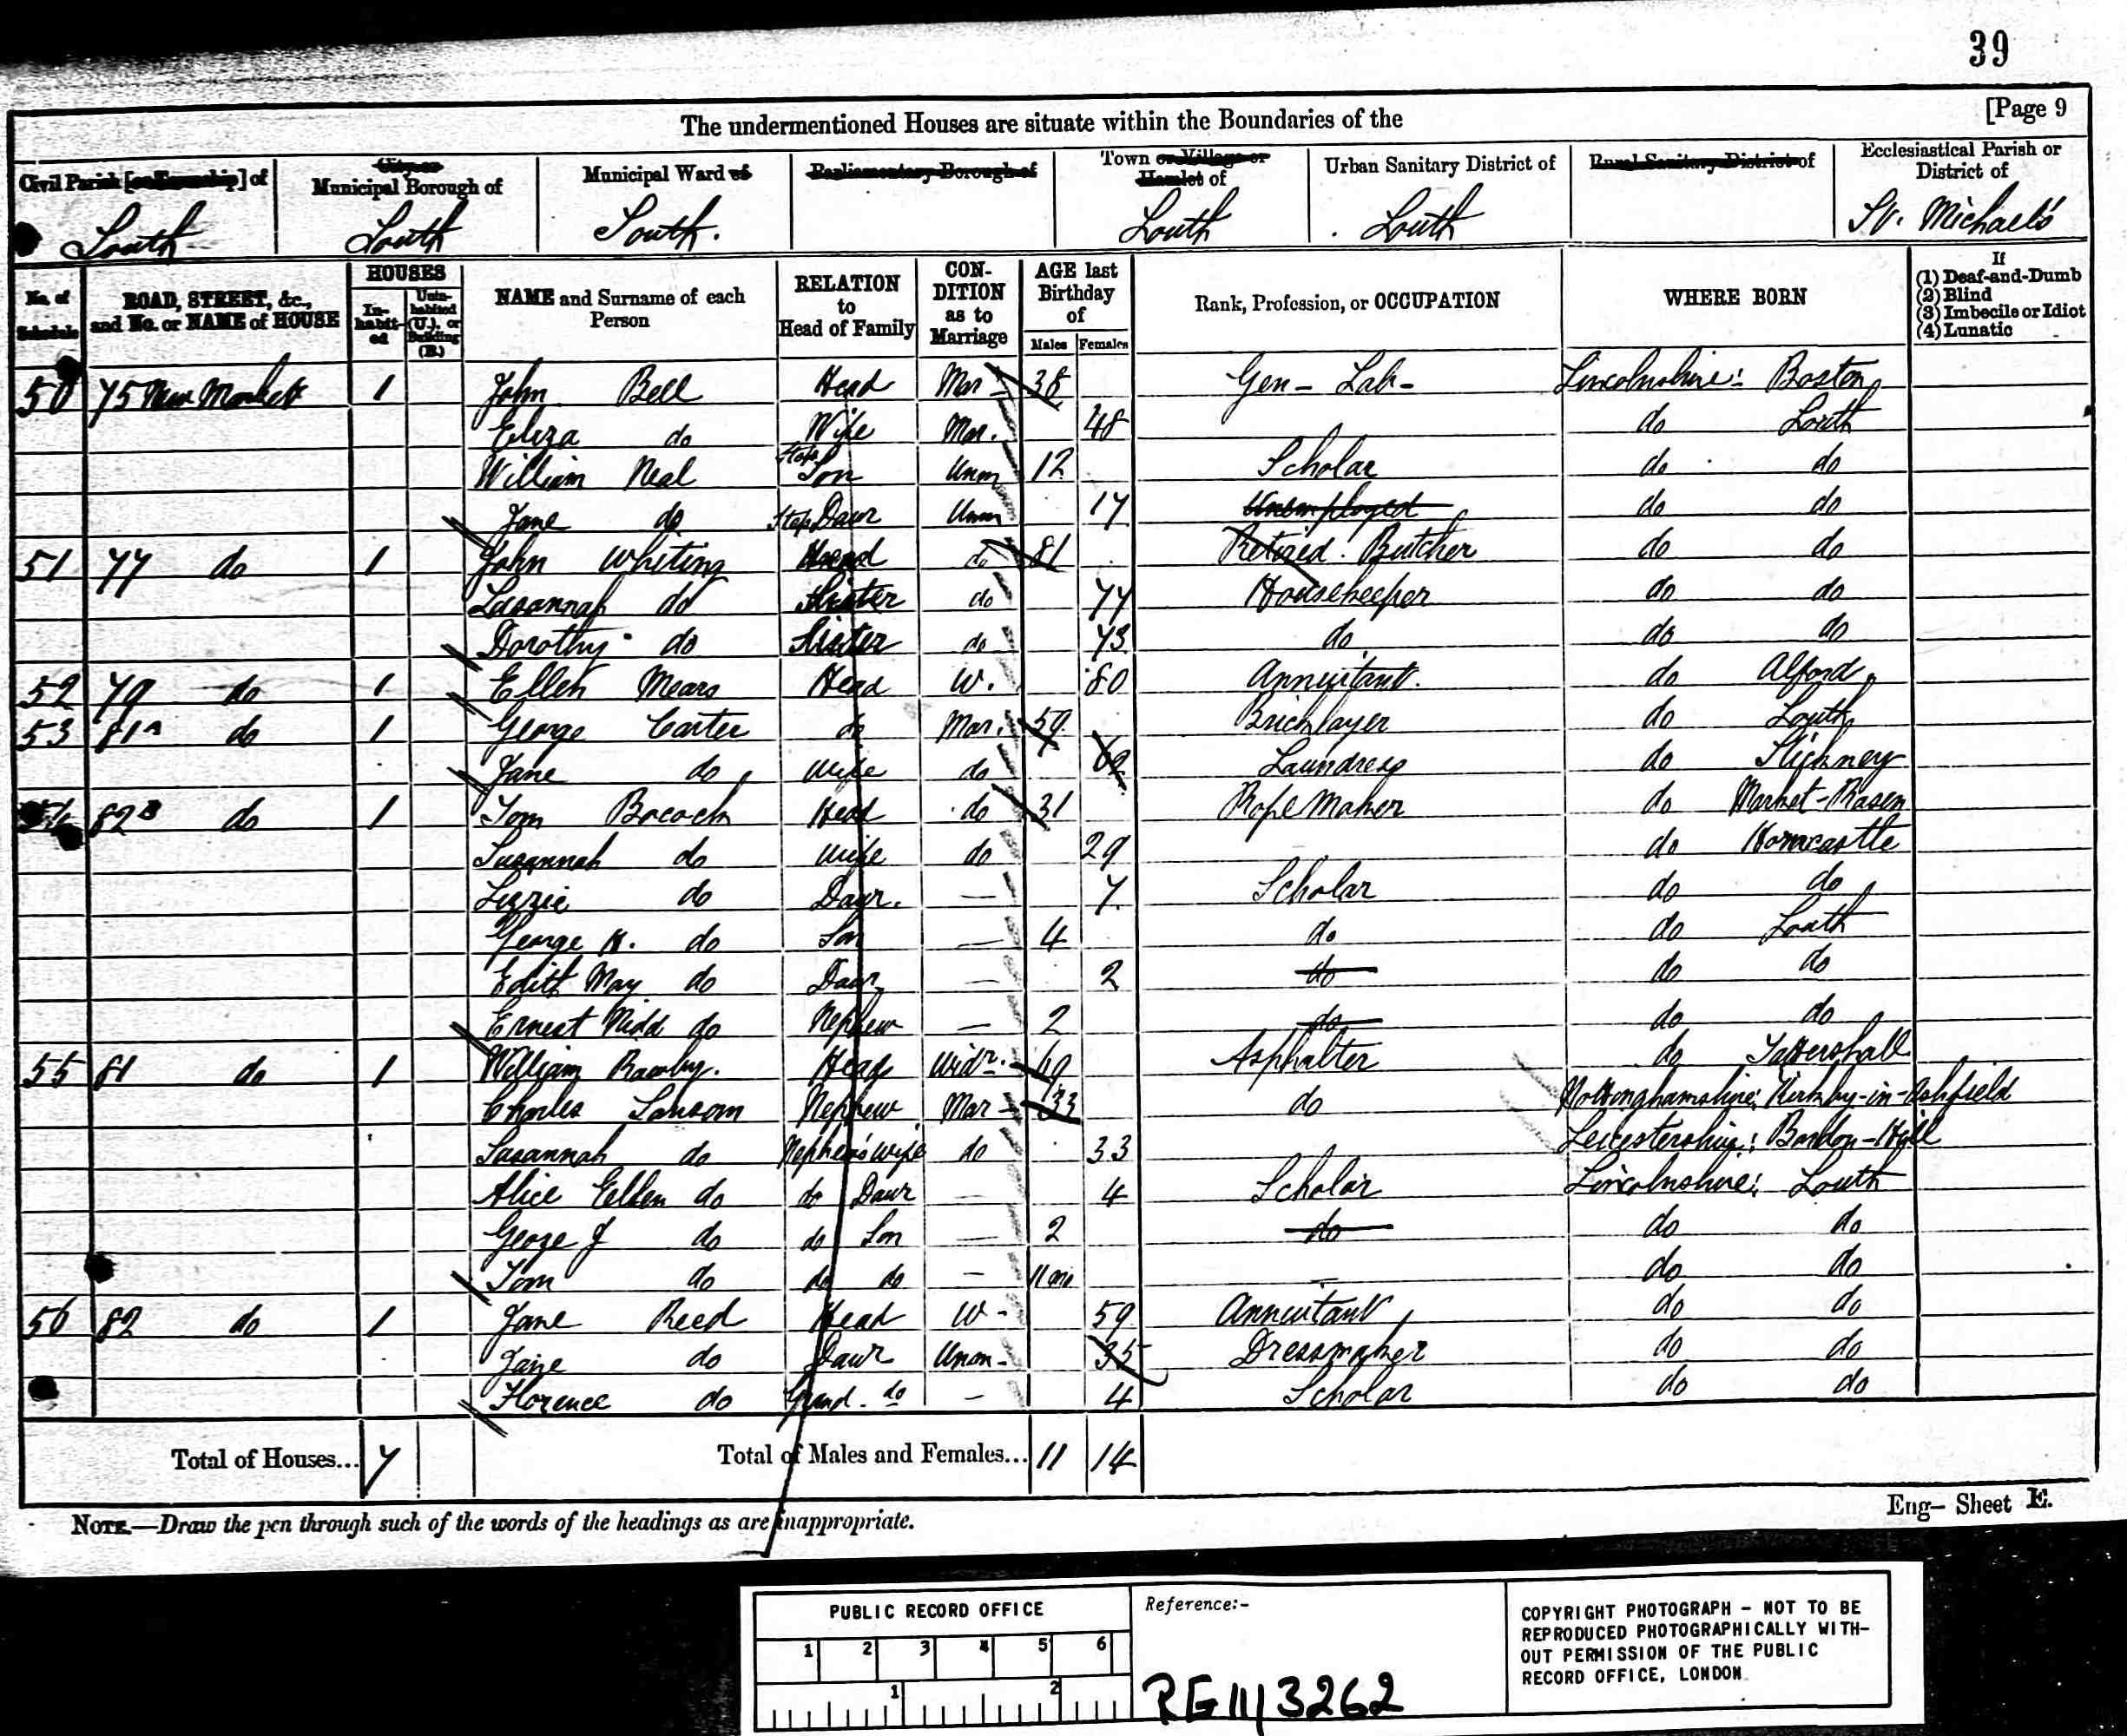 39
[Page 9
The undermentioned Houses are situate within the Boundaries of the
Civil Parish [or Township] of | City or Municipal Borough of | Municipal Ward of | Parliamentary Borough of | Town or Village or Hamlet of | Urban Sanitary District of | Rural Sanitary District of | Ecclesiastical Parish or District of
Louth | Louth | South. | Louth | Louth | St. Michael's
No. of Schedule | ROAD, STREET, &c., and No. or NAME of HOUSE | HOUSES Inhabited | Uninhabited (U.), or Building (B.) | NAME and Surname of each Person | RELATION to Head of Family | CONDITION as to Marriage | AGE last Birthday of Males | Females | Rank, Profession, or OCCUPATION | WHERE BORN | If (1) Deaf-and-Dumb (2) Blind (3) Imbecile or Idiot (4) Lunatic
50 75 New Market 1 John Bell Head Mar 38 Gen- Lab- Lincolnshire: Boston
Eliza do Wife Mar. 48 do Louth
William Neal Step Son Unm 12 Scholar do do
Jane do Step Daur Unm 17 Unemployed do do
51 77 do 1 John Whiting Head do 81 Retired Butcher do do
Susannah do Sister do 77 Housekeeper do do
Dorothy do Sister do 73 do do do
52 79 do 1 Ellen Mears Head W. 80 Annuitant. do Alford
53 81A do 1 George Carter do Mar. 59 Bricklayer do Louth
Jane do Wife do Laundress do Stickney
54 82B do 1 Tom Bocock Head do 31 Rope Maker do Market-Rasen
Susannah do Wife do 29 do Horncastle
Lizzie do Daur. — 7 Scholar do do
George H. do Son — 4 do do Louth
Edith May do Daur — 2 do do do
Ernest Nidd do Nephew — 2 do do do
55 81 do 1 William Rawby. Head Widr. 69 Asphalter do Tattershall
Charles Sansom Nephew Mar 33 do Nottinghamshire: Kirkby-in-Ashfield
Susannah do Nephew's wife do 33 Leicestershire: Bardon-Hill
Alice Ellen do do Daur — 4 Scholar Lincolnshire: Louth
George J do do Son — 2 do do do
Tom do do do — 11 mo — do do
56 82 do 1 Jane Reed Head W- 59 Annuitant do do
Jane do Daur Unm- 35 Dressmaker do do
Florence do Grand. do — 4 Scholar do do
Total of Houses... 7 Total of Males and Females... 11 14
NOTE.—Draw the pen through such of the words of the headings as are inappropriate.
Eng- Sheet E.
PUBLIC RECORD OFFICE
1 2 3 4 5 6
1 2
Reference:-
RG 11/3262
COPYRIGHT PHOTOGRAPH - NOT TO BE
REPRODUCED PHOTOGRAPHICALLY WITH-
OUT PERMISSION OF THE PUBLIC
RECORD OFFICE, LONDON